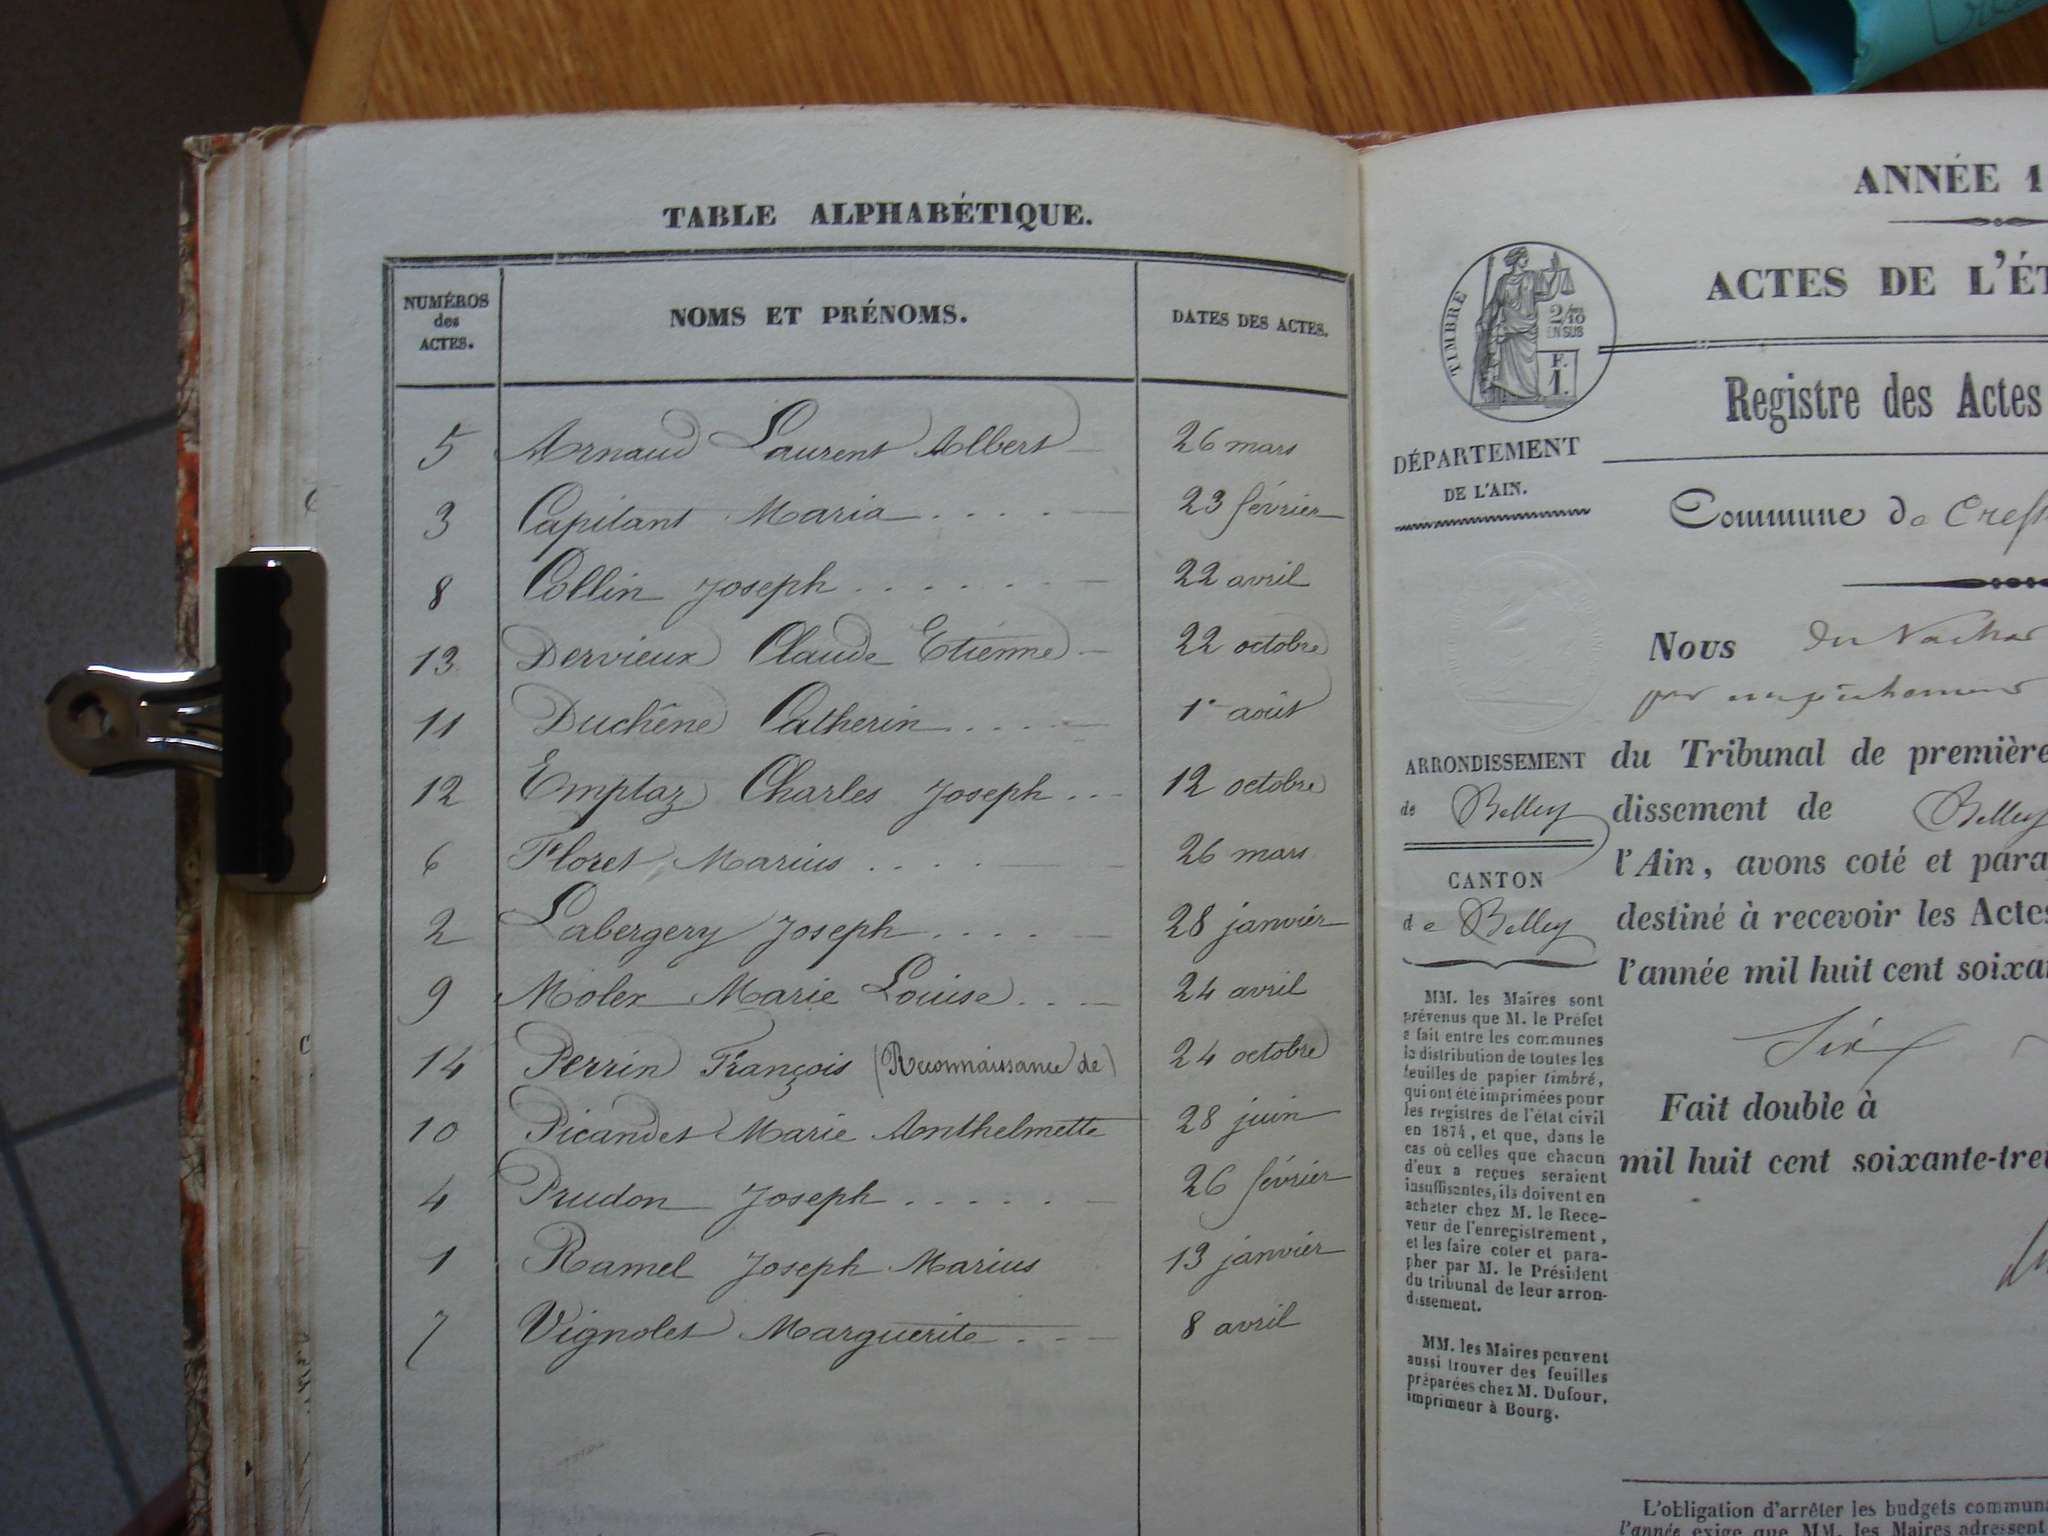 TABLE ALPHABÉTIQUE.
NUMÉROS des ACTES. NOMS ET PRÉNOMS. DATES DES ACTES.
5 Arnaud Laurent Albert 26 mars
3 Capitant Maria . . . . 23 février
8 Collin Joseph . . . . . . 22 avril
13 Dervieux Claude Etienne 22 octobre
11 Duchêne Catherin . . . . 1er août
12 Emptaz Charles Joseph . . . 12 octobre
6 Floret Marius . . . . 26 mars
2 Labergery Joseph . . . . . 28 janvier
9 Molex Marie Louise . . . 24 avril
14 Perrin François (Reconnaissance de) 24 octobre
10 Picandet Marie Anthelmette 28 juin
4 Prudon Joseph . . . . . . 26 février
1 Ramel Joseph Marius 13 janvier
7 Vignolet Marguerite . . . 8 avril
ANNÉE 1
ACTES DE L'ÉT
TIMBRE
2/10
EN SUS
F.
1.
Registre des Actes
DÉPARTEMENT
DE L'AIN.
Commune de Cress
Nous du Nachat
par empêchement
ARRONDISSEMENT
de Belley
CANTON
de Belley
du Tribunal de première
dissement de Belley
l'Ain, avons coté et para
destiné à recevoir les Actes
l'année mil huit cent soixan
Six
Fait double à
mil huit cent soixante-trei
MM. les Maires sont
prévenus que M. le Préfet
a fait entre les communes
la distribution de toutes les
feuilles de papier timbré,
qui ont été imprimées pour
les registres de l'état civil
en 1874, et que, dans le
cas où celles que chacun
d'eux a reçues seraient
insuffisantes, ils doivent en
acheter chez M. le Rece-
veur de l'enregistrement,
et les faire coter et para-
pher par M. le Président
du tribunal de leur arron-
dissement.
MM. les Maires peuvent
aussi trouver des feuilles
préparées chez M. Dufour,
imprimeur à Bourg.
L'obligation d'arrêter les budgets commun
l'année exige que MM. les Maires adressent